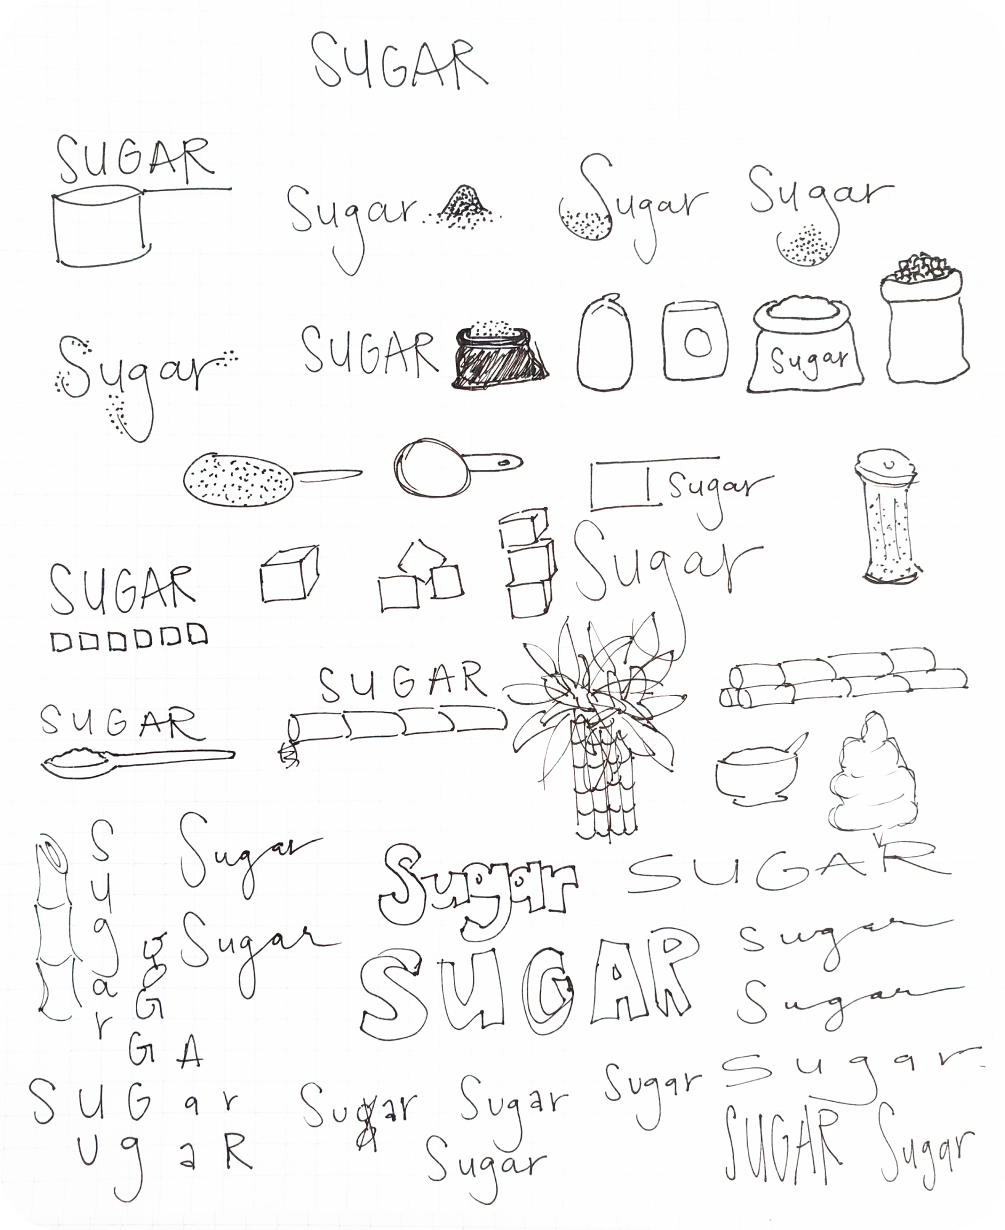 SUGAR
SUGAR
Sugar
Sugar
Sugar
Sugar
SUGAR
Sugar
Sugar
SUGAR
Sugar
SUGAR
SUGAR
Sugar
Sugar
SUGAR
Sugar
g Sugar
G
G A
SUGAR
Sugar
Sugar
Sugar
SUGar
ugaR
Sugar
Sugar
Sugar
Sugar
Sugar
SUGAR
Sugar